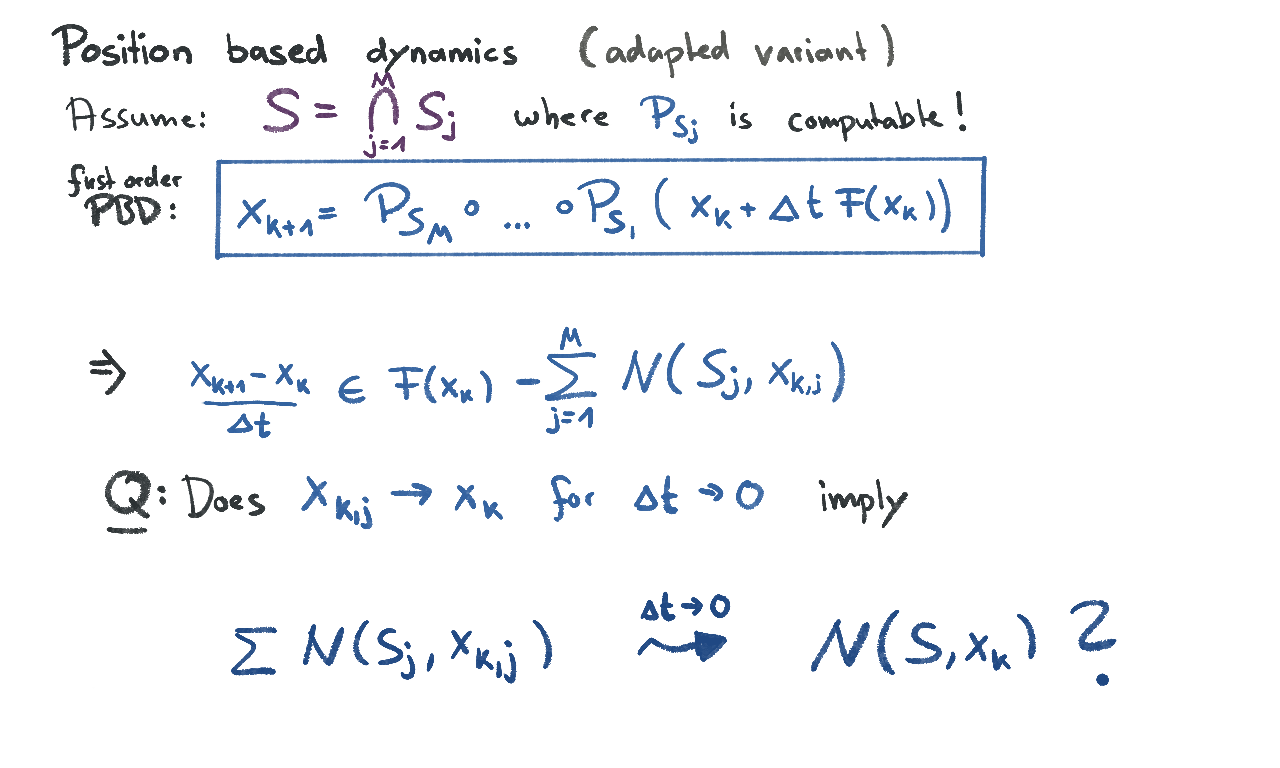 Position based dynamics (adapted variant)
Assume: S = ⋂_{j=1}^{M} S_j where P_{S_j} is computable!
first order
PBD: x_{k+1} = P_{S_M} ∘ ... ∘ P_{S_1} ( x_k + Δt F(x_k))
⇒ \frac{x_{k+1} - x_k}{Δt} ∈ F(x_k) - ∑_{j=1}^{M} N( S_j, x_{k,j})
Q: Does x_{k,j} → x_k for Δt → 0 imply
∑ N(S_j, x_{k,j}) \xrightarrow{Δt→0} N(S, x_k) ?